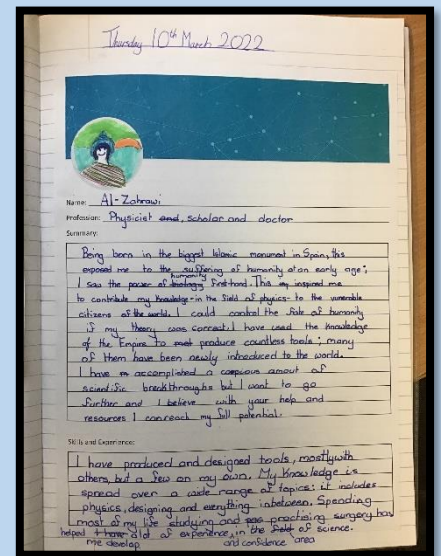 Thursday 10th March 2022
Name: Al-Zahrawi
Profession: Physicist and, scholar and doctor
Summary:
Being born in the biggest Islamic monument in Spain, this
exposed me to the suffering of humanity at an early age;
I saw the power of humanity first-hand. This inspired me
to contribute my knowledge - in the field of physics - to the vunerable
citizens of the world. I could control the fate of humanity
if my theory was correct. I have used the knowledge
of the Empire to produce countless tools; many
of them have been newly introduced to the world.
I have accomplished a copious amout of
scientific breakthroughs but I want to go
further and I believe with your help and
resources I can reach my full potential.
Skills and Experience:
I have produced and designed tools, mostly with
others, but a few on my own. My knowledge is
spread over a wide range of topics: it includes
physics, designing and everything inbetween. Spending
most of my life studying and practising surgery has
helped me develop alot of experience and confidence in the area of science.